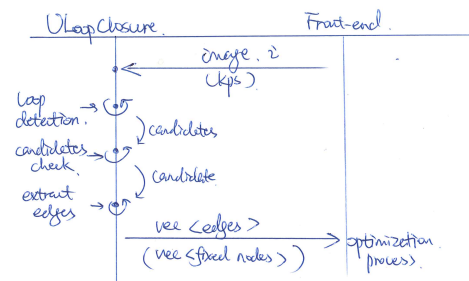 ULoopClosure.
Front-end.
image. i
(kps)
loop
detection.
candidates
candidates
check.
candidate
extract
edges
vec <edges>
(vec <fixed nodes>)
optimization
process.